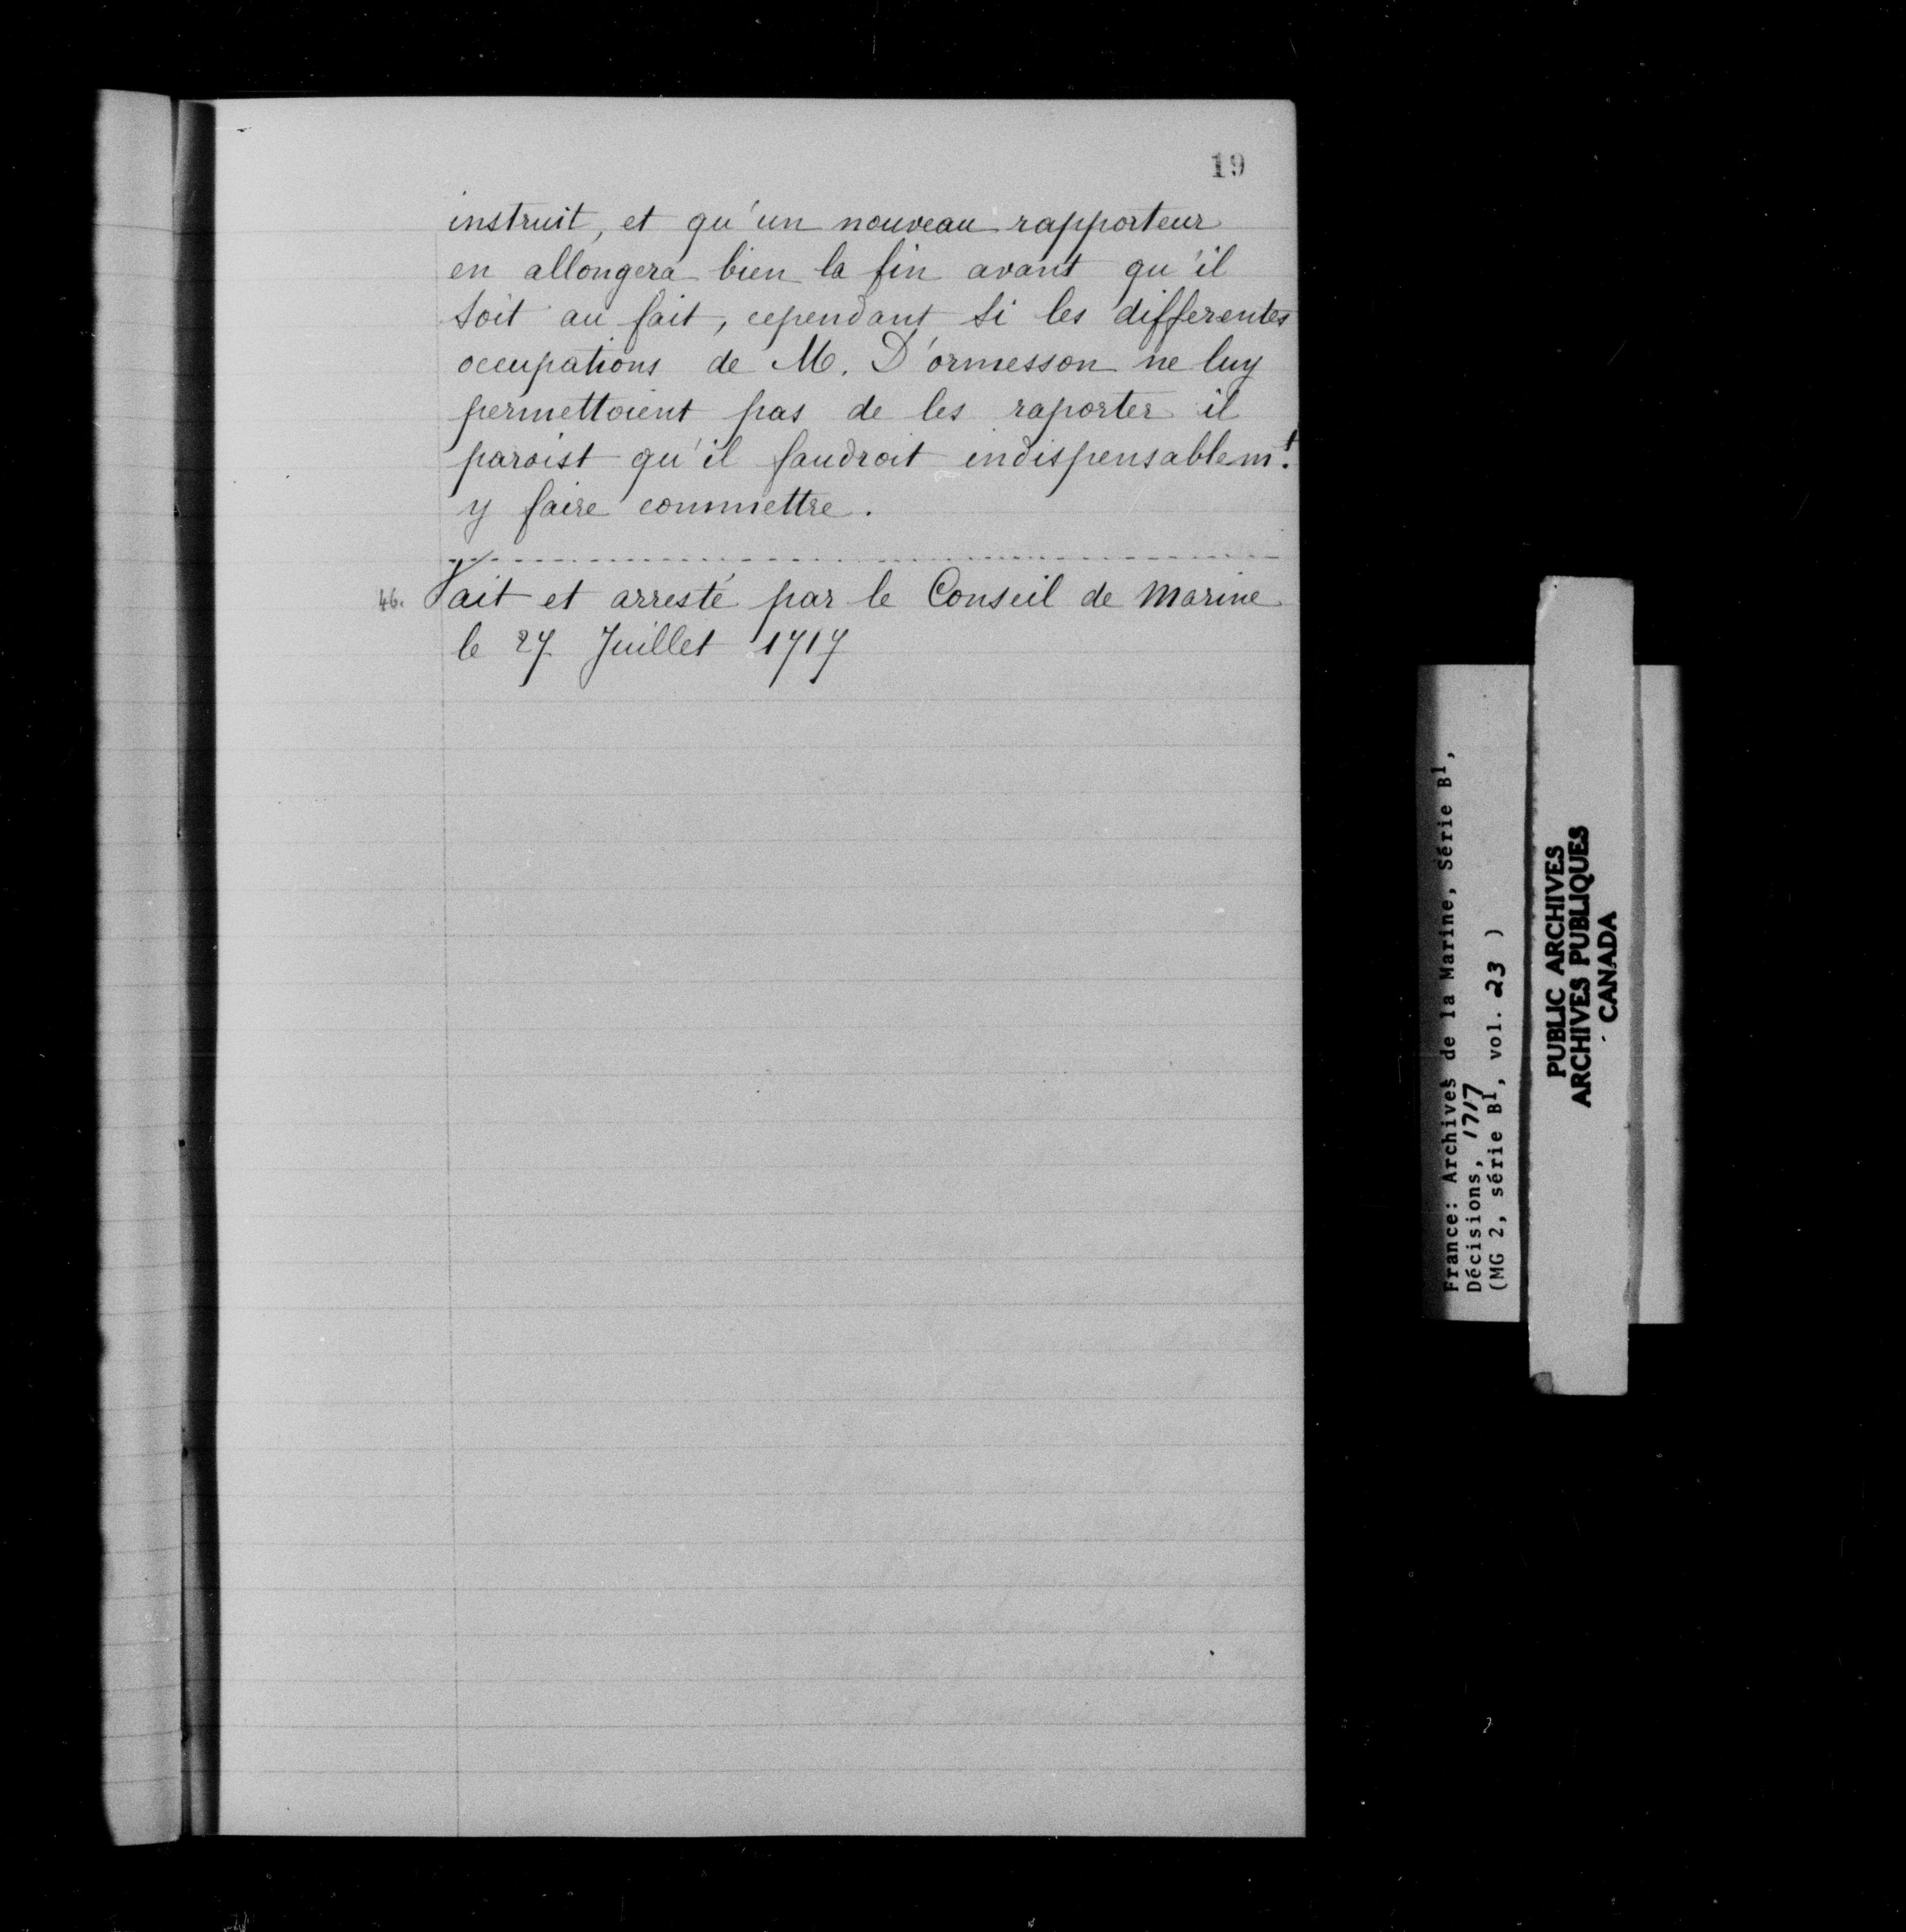 19
instruit, et qu'un nouveau rapporteur
en allongera bien la fin avant qu'il
soit au fait, cependant si les differentes
occupations de M. D'ormesson ne luy
permettoient pas de les raporter il
paroist qu'il faudroit indispensablem.t
y faire commettre.
46. Fait et arresté par le Conseil de Marine
le 27 Juillet 1717
France: Archives de la Marine, Série B1,
Décisions, 1717
(MG 2, série B1, vol. 23 )
PUBLIC ARCHIVES
ARCHIVES PUBLIQUES
CANADA